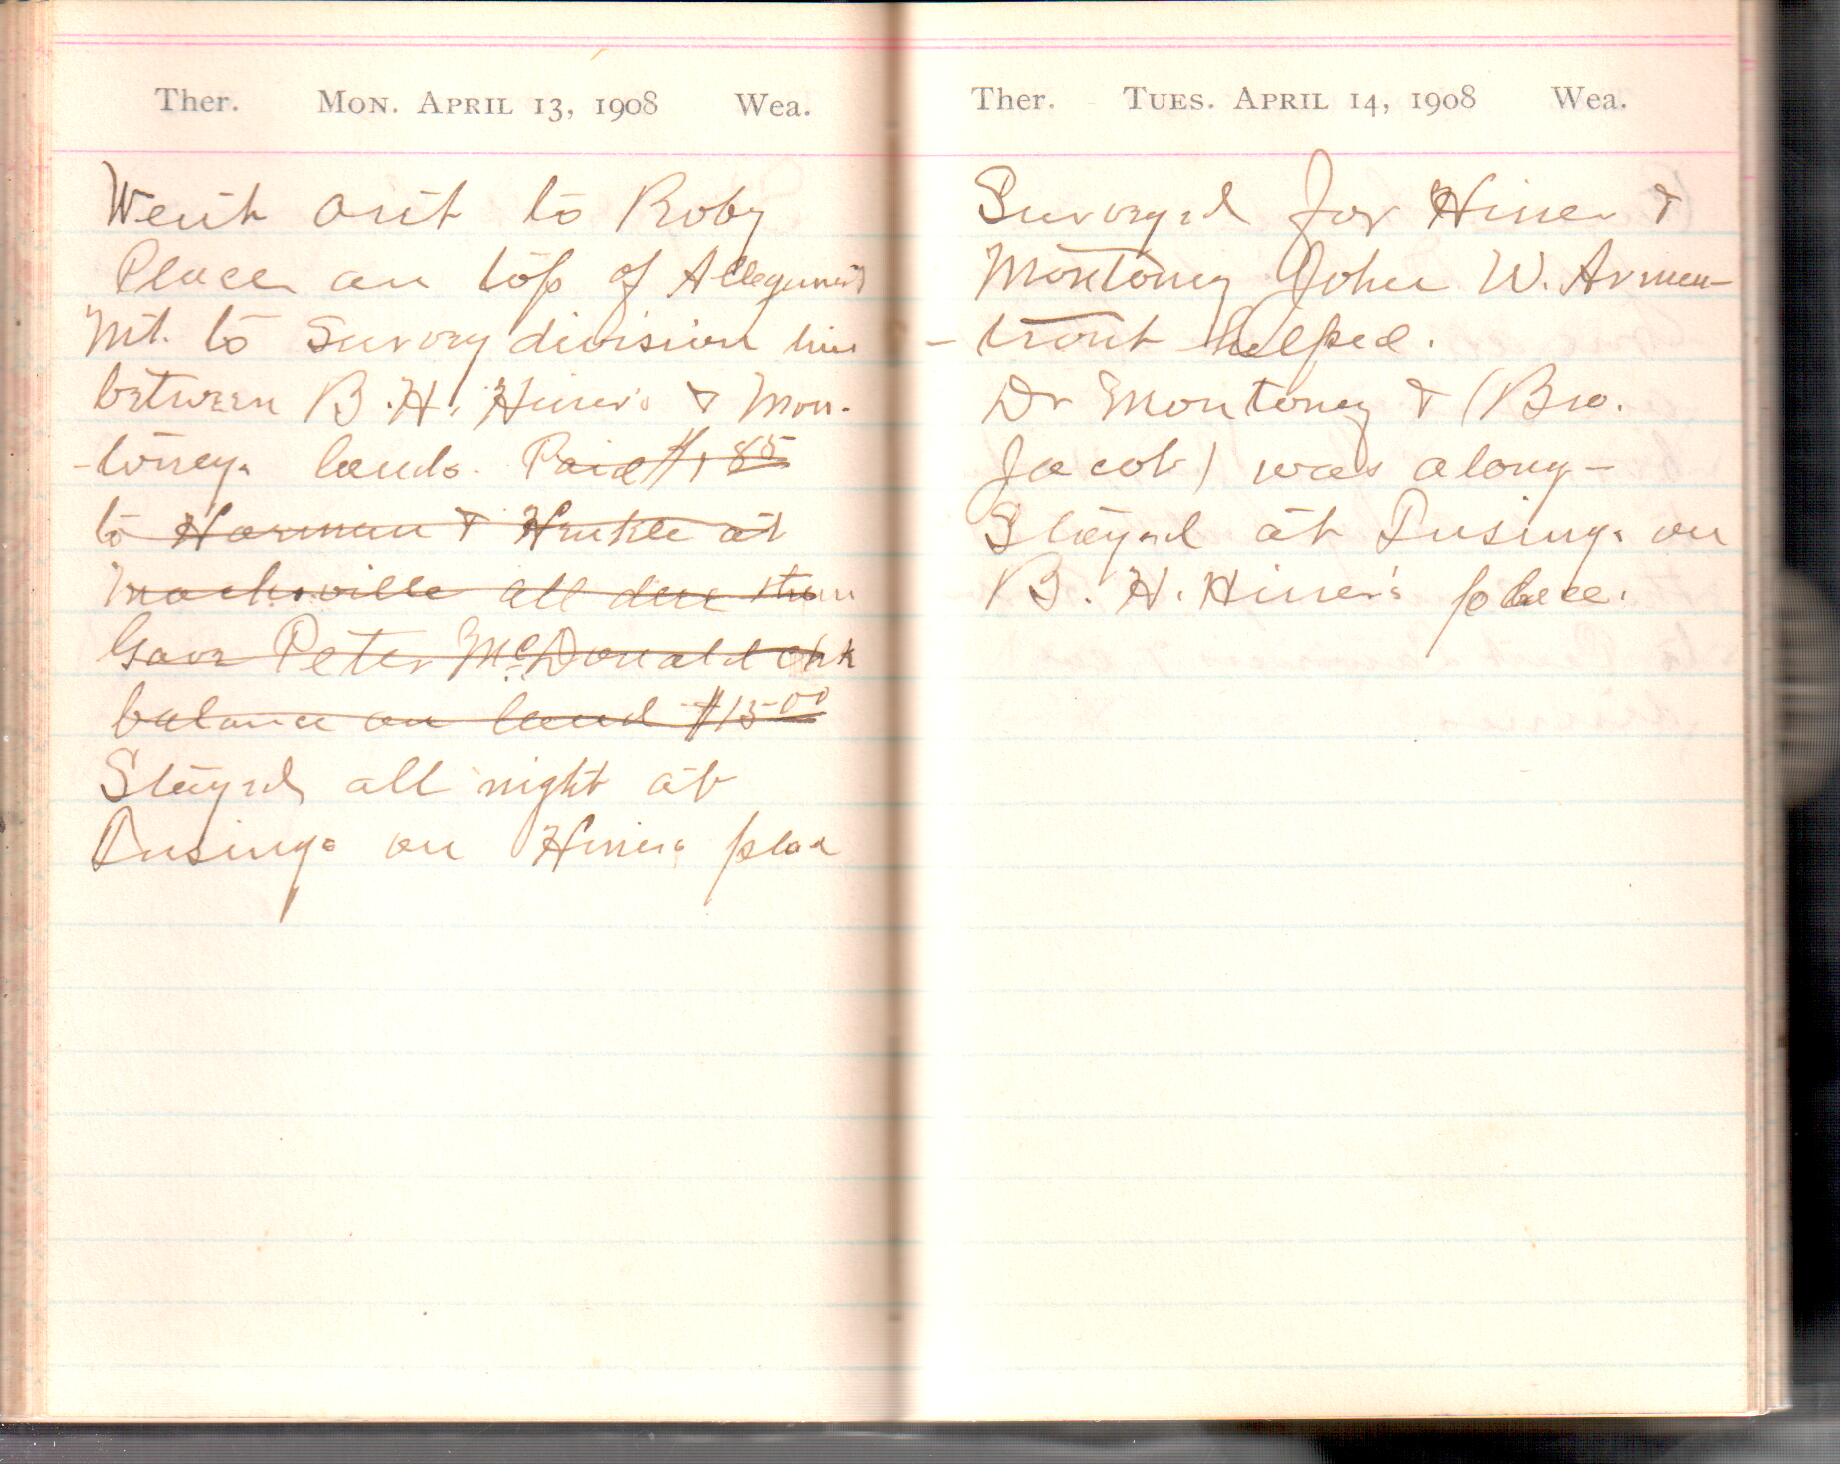 Ther. Mon. April 13, 1908 Wea.
Went out to Roby
Place on top of Allegheny
Mt. to Survey division line
between B. H. Hiner's & Mon-
-toney's lands. Paid $1.85
to Harman & Hinkle at
Macksville all due them
Gave Peter McDonald chk
balance on land $15.00
Stayed all night at
Dusing's on Hiner's place
Ther. Tues. April 14, 1908 Wea.
Surveyed for Hiner &
Montoney John W. Armen-
-trout helped.
Dr Montoney & (Bro.
Jacob) was along-
Stayed at Dusing's on
B. H. Hiner's place.